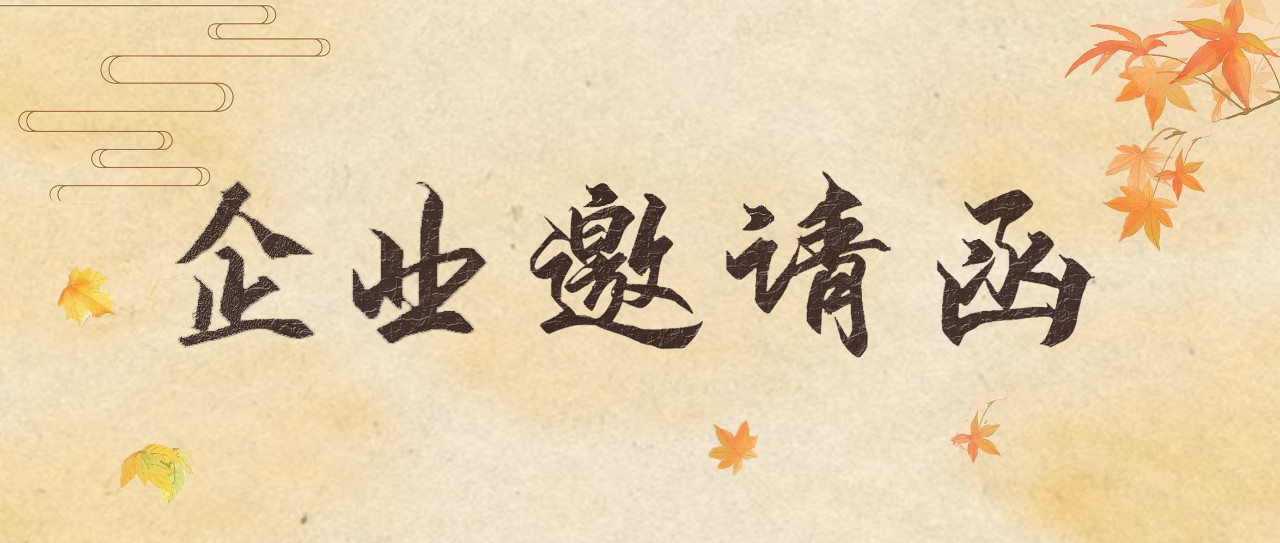 企业邀请函